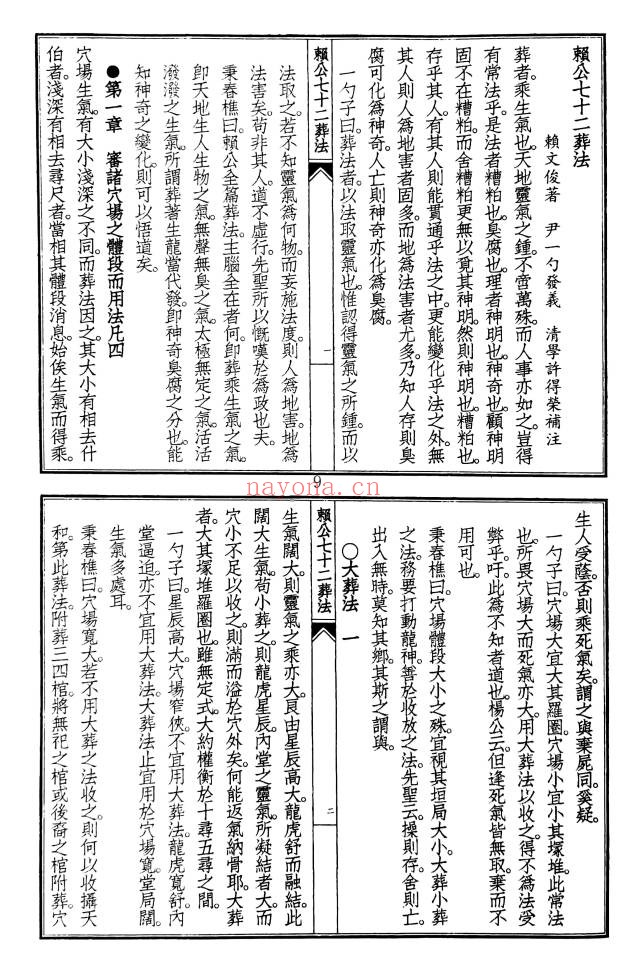 賴公七十二葬法
賴文俊著　尹一勺發義　清學許得榮補注
葬者。乘生氣也。天地靈氣之鍾。不啻萬殊。而人事亦如之。豈得
有常法乎。是法者糟粕也。臭腐也。理者神明也。神奇也。顧神明
固不在糟粕。而舍糟粕更無以覓其神明。然則神明也。糟粕也。
存乎其人。有其人則能貫通乎法之中。更能變化乎法之外。無
其人。則人為地害者固多。而地為法害者尤多。乃知人存則臭
腐可化為神奇。人亡則神奇亦化為臭腐。
一勺子曰。葬法者。以法取靈氣也。惟認得靈氣之所鍾。而以
賴公七十二葬法
一
法取之。若不知靈氣為何物。而妄施法度。則人為地害。地為
法害矣。苟非其人。道不虛行。先聖所以慨嘆於為政也夫。
秉春樵曰。賴公全篇葬法。主腦全在者何。即葬乘生氣之氣。
卽天地生人生物之氣。無聲無臭之氣。太極無定之氣。活活
潑潑之生氣。所謂葬著生龍當代發。卽神奇臭腐之分也。能
知神奇之變化。則可以悟道矣。
●第一章　審諸穴場之體段而用法凡四
穴場生氣。有大小淺深之不同。而葬法因之。其大小有相去什
伯者。淺深有相去尋尺者。當相其體段消息。始俟生氣而得乘。
9
nayona.cn
生人受蔭。否則乘死氣矣。謂之與棄屍同。奚疑。
一勺子曰。穴場大宜大其羅圈。穴場小宜小其塚堆。此常法
也。所畏穴場大而死氣亦大。用大葬法以收之。得不為法受
弊乎。吁。此為不知者道也。楊公云。但逢死氣皆無取。棄而不
用可也。
秉春樵曰。穴場體段大小之殊。宜視其垣局大小。大葬小葬
之法。務要打動龍神。善於收放之法。先聖云。操則存。舍則亡。
出入無時。莫知其鄉。其斯之謂與。
○大葬法　一
賴公七十二葬法
二
生氣闊大。則靈氣之乘亦大。良由星辰高大。龍虎舒而融結。此
闊大生氣。苟小葬之。則龍虎星辰。內堂之靈氣。所凝結者大。而
穴小不足以收之。則滿而溢於穴外矣。何能返氣納骨耶。大葬
者。大其塚堆羅圈也。雖無定式。大約權衡於十尋五尋之間。
一勺子曰。星辰高大。穴場窄狹。不宜用大葬法。龍虎寬舒。內
堂逼迫。亦不宜用大葬法。大葬法止宜用於穴場寬。堂局闊。
生氣多處耳。
秉春樵曰。穴場寬大。若不用大葬之法收之。則何以收攝天
和。第此葬法。附葬三四棺。將無祀之棺。或後裔之棺附葬。穴